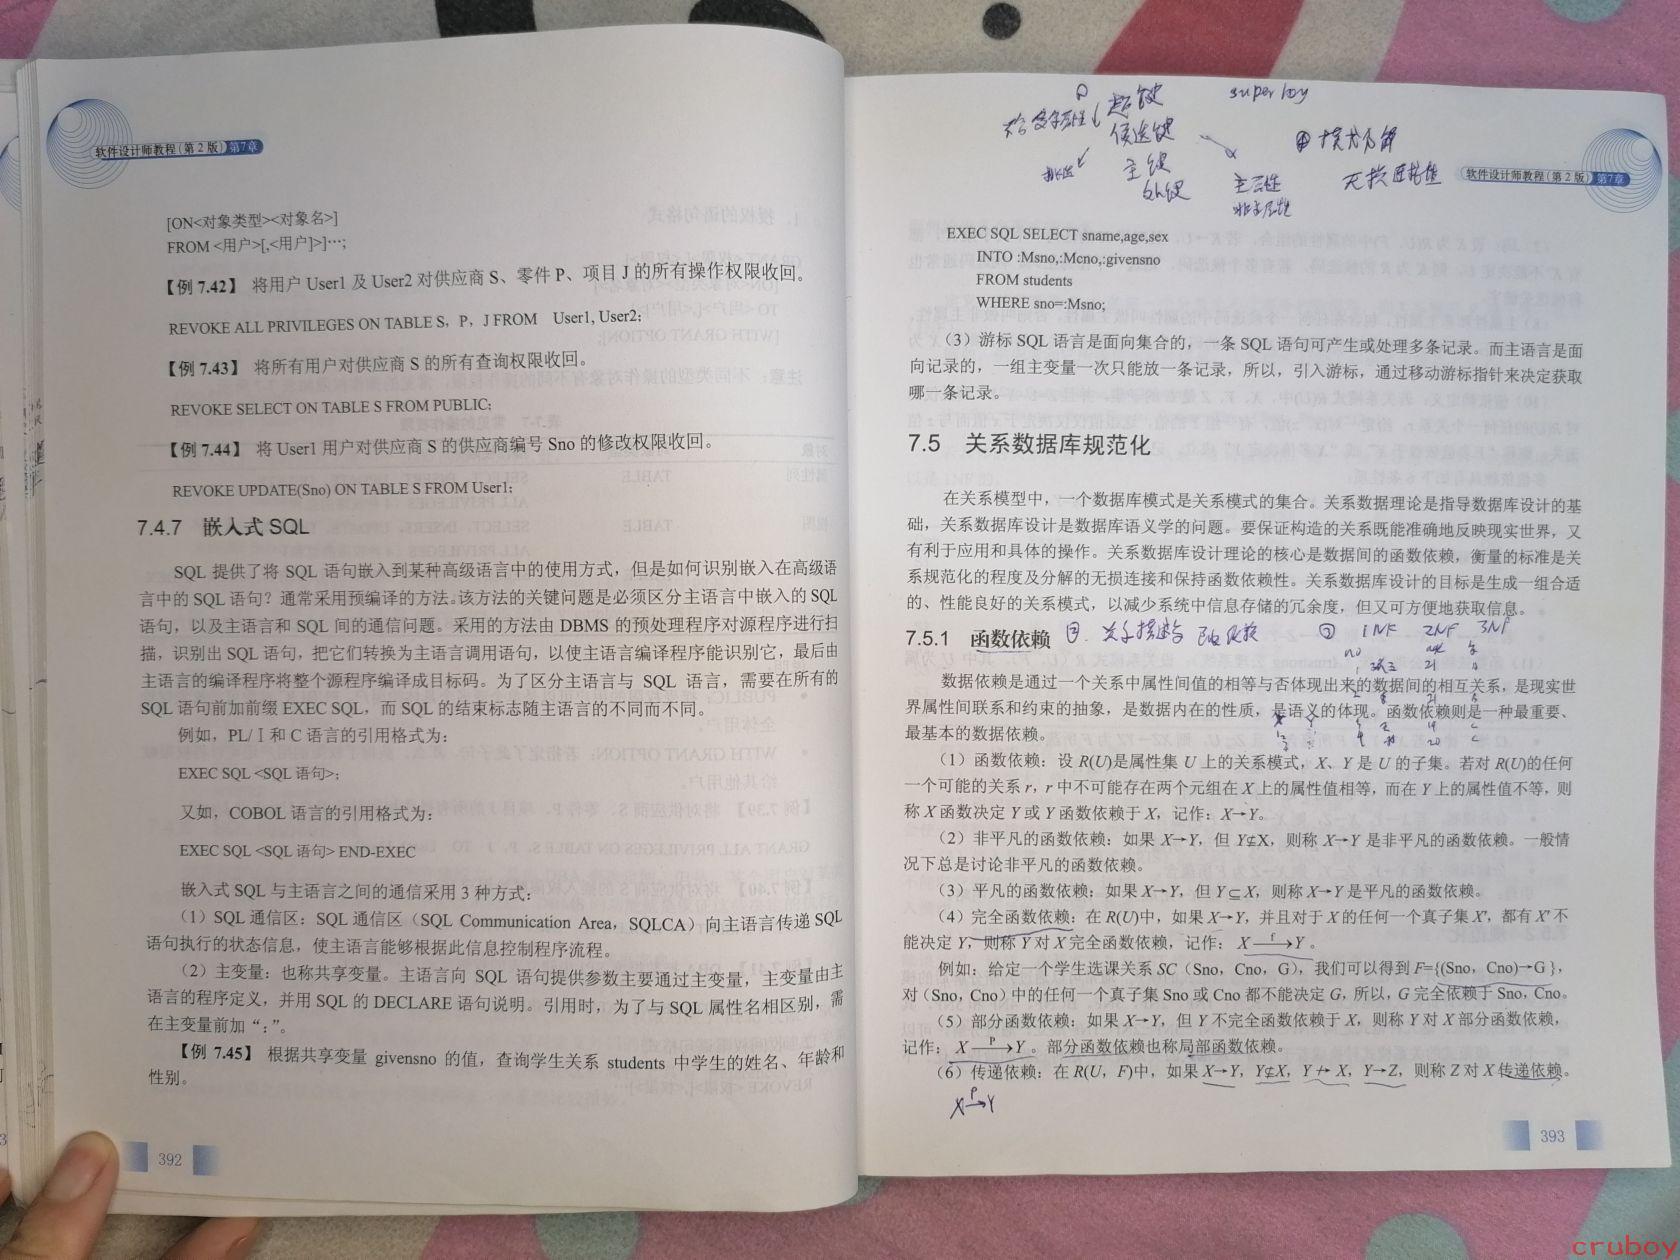 软件设计师教程（第 2 版）第7章
[ON<对象类型><对象名>]
FROM <用户>[,<用户>]>]…;
【例 7.42】 将用户 User1 及 User2 对供应商 S、零件 P、项目 J 的所有操作权限收回。
REVOKE ALL PRIVILEGES ON TABLE S，P，J FROM User1, User2;
【例 7.43】 将所有用户对供应商 S 的所有查询权限收回。
REVOKE SELECT ON TABLE S FROM PUBLIC;
【例 7.44】 将 User1 用户对供应商 S 的供应商编号 Sno 的修改权限收回。
REVOKE UPDATE(Sno) ON TABLE S FROM User1;
7.4.7 嵌入式 SQL
SQL 提供了将 SQL 语句嵌入到某种高级语言中的使用方式，但是如何识别嵌入在高级语
言中的 SQL 语句？通常采用预编译的方法。该方法的关键问题是必须区分主语言中嵌入的 SQL
语句，以及主语言和 SQL 间的通信问题。采用的方法由 DBMS 的预处理程序对源程序进行扫
描，识别出 SQL 语句，把它们转换为主语言调用语句，以使主语言编译程序能识别它，最后由
主语言的编译程序将整个源程序编译成目标码。为了区分主语言与 SQL 语言，需要在所有的
SQL 语句前加前缀 EXEC SQL，而 SQL 的结束标志随主语言的不同而不同。
例如，PL/Ⅰ和 C 语言的引用格式为：
EXEC SQL <SQL 语句>;
又如，COBOL 语言的引用格式为：
EXEC SQL <SQL 语句> END-EXEC
嵌入式 SQL 与主语言之间的通信采用 3 种方式：
（1）SQL 通信区：SQL 通信区（SQL Communication Area，SQLCA）向主语言传递 SQL
语句执行的状态信息，使主语言能够根据此信息控制程序流程。
（2）主变量：也称共享变量。主语言向 SQL 语句提供参数主要通过主变量，主变量由主
语言的程序定义，并用 SQL 的 DECLARE 语句说明。引用时，为了与 SQL 属性名相区别，需
在主变量前加“：”。
【例 7.45】 根据共享变量 givensno 的值，查询学生关系 students 中学生的姓名、年龄和
性别。
392
超键
候选键
主键
外键
软件设计师教程（第 2 版）第7章
EXEC SQL SELECT sname,age,sex
INTO :Msno,:Mcno,:givensno
FROM students
WHERE sno=:Msno;
（3）游标 SQL 语言是面向集合的，一条 SQL 语句可产生或处理多条记录。而主语言是面
向记录的，一组主变量一次只能放一条记录，所以，引入游标，通过移动游标指针来决定获取
哪一条记录。
7.5 关系数据库规范化
在关系模型中，一个数据库模式是关系模式的集合。关系数据理论是指导数据库设计的基
础，关系数据库设计是数据库语义学的问题。要保证构造的关系既能准确地反映现实世界，又
有利于应用和具体的操作。关系数据库设计理论的核心是数据间的函数依赖，衡量的标准是关
系规范化的程度及分解的无损连接和保持函数依赖性。关系数据库设计的目标是生成一组合适
的、性能良好的关系模式，以减少系统中信息存储的冗余度，但又可方便地获取信息。
7.5.1 函数依赖
1NF 2NF 3NF
数据依赖是通过一个关系中属性间值的相等与否体现出来的数据间的相互关系，是现实世
界属性间联系和约束的抽象，是数据内在的性质，是语义的体现。函数依赖则是一种最重要、
最基本的数据依赖。
（1）函数依赖：设 R(U)是属性集 U 上的关系模式，X、Y 是 U 的子集。若对 R(U)的任何
一个可能的关系 r，r 中不可能存在两个元组在 X 上的属性值相等，而在 Y 上的属性值不等，则
称 X 函数决定 Y 或 Y 函数依赖于 X，记作：X→Y。
（2）非平凡的函数依赖：如果 X→Y，但 Y⊈X，则称 X→Y 是非平凡的函数依赖。一般情
况下总是讨论非平凡的函数依赖。
（3）平凡的函数依赖：如果 X→Y，但 Y⊆X，则称 X→Y 是平凡的函数依赖。
（4）完全函数依赖：在 R(U)中，如果 X→Y，并且对于 X 的任何一个真子集 X′，都有 X′ 不
能决定 Y，则称 Y 对 X 完全函数依赖，记作： X —f→ Y 。
例如：给定一个学生选课关系 SC（Sno，Cno，G），我们可以得到 F={(Sno，Cno)→G }，
对（Sno，Cno）中的任何一个真子集 Sno 或 Cno 都不能决定 G，所以，G 完全依赖于 Sno，Cno。
（5）部分函数依赖：如果 X→Y，但 Y 不完全函数依赖于 X，则称 Y 对 X 部分函数依赖，
记作： X —P→ Y 。部分函数依赖也称局部函数依赖。
（6）传递依赖：在 R(U，F)中，如果 X→Y，Y⊈X，Y↛X，Y→Z，则称 Z 对 X 传递依赖。
X —P→ Y
393
cruboy